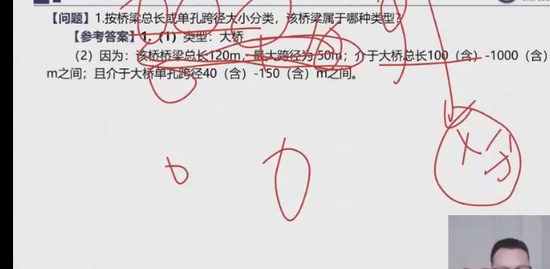 【问题】1.按桥梁总长或单孔跨径大小分类，该桥梁属于哪种类型？
【参考答案】1.（1）类型：大桥
（2）因为：该桥桥梁总长120m，最大跨径为50m；介于大桥总长100（含）-1000（含）
m之间；且介于大桥单孔跨径40（含）-150（含）m之间。